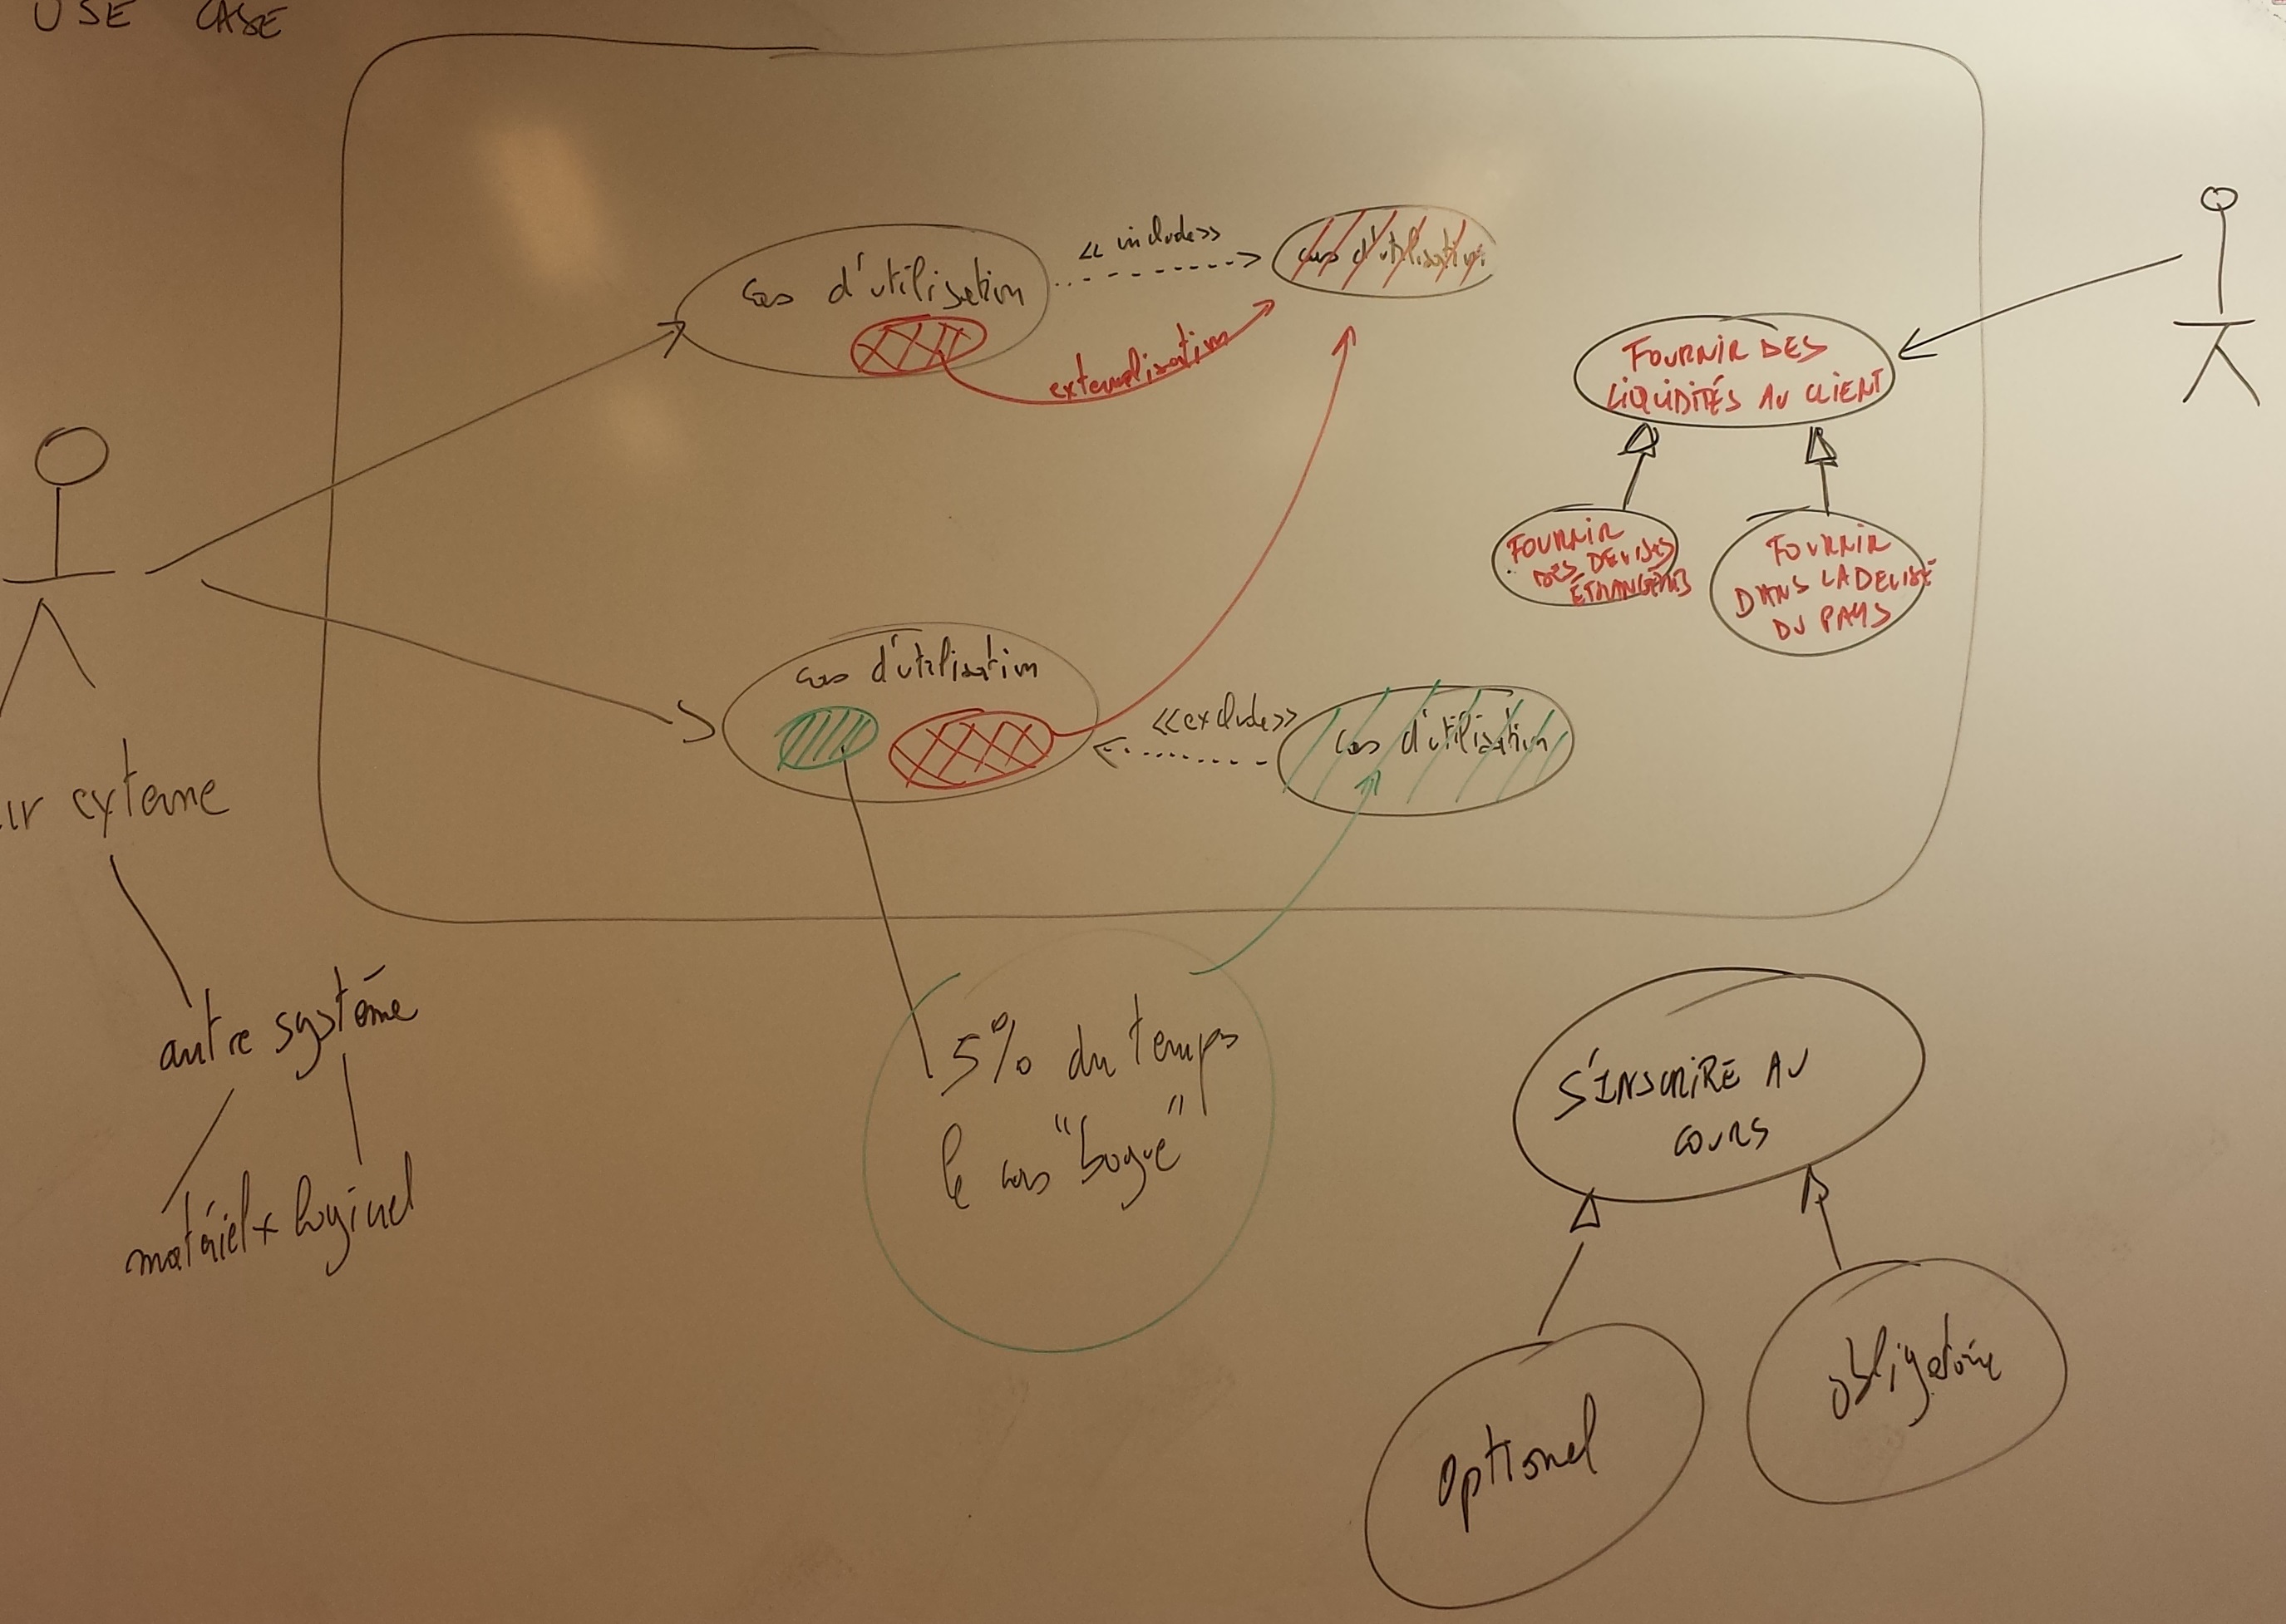 USE CASE
cas d'utilisation
<< include >>
cas d'utilisation
externalisation
FOURNIR DES
LIQUIDITÉS AU CLIENT
FOURNIR
DES DEVISES
ÉTRANGÈRES
FOURNIR
DANS LA DEVISE
DU PAYS
cas d'utilisation
<<exclude>>
cas d'utilisation
externe
autre système
matériel + logiciel
5% du temps
le cas "bogue"
S'INSCRIRE AU
COURS
optionel
obligatoire